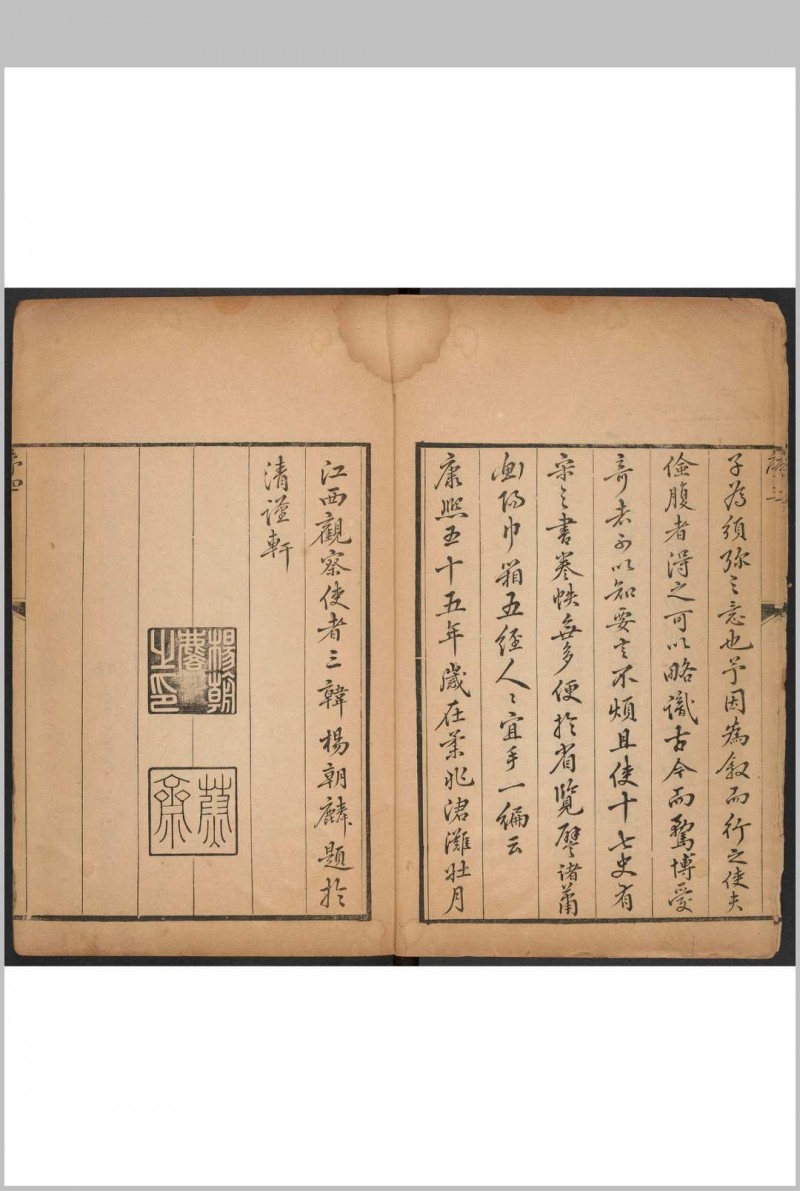 子為須弥之意也予因為叙而行之使夫
儉腹者得之可以略識古今而騖博愛
奇者可以知要言不煩且使十七史有
宋之書卷帙無多便於省覽譬諸蕭
衡陽巾箱五經人〻宜手一編云
康熙五十五年歲在柔兆涒灘壯月
江西觀察使者三韓楊朝麟題於
清謹軒
楊朝麟之印